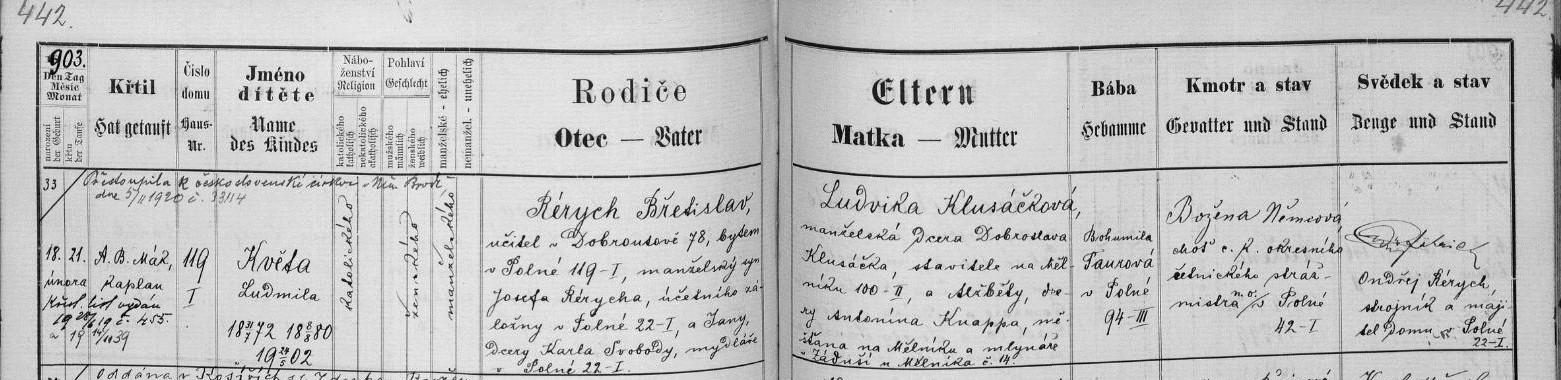 442.
442.
903.
Den Tag
Měsíc
Monat
narození
der Geburt
křtu
der Taufe
Křtil
Hat getauft
Číslo
domu
Haus-
Nr.
Jméno
dítěte
Name
des Kindes
Nábo-
ženství
Religion
katolického
katholisch
nekatolického
akatholisch
Pohlaví
Geschlecht
mužského
männlich
ženského
weiblich
manželské - ehelich
nemanžel. - unehelich
Rodiče
Otec — Vater
Eltern
Matka — Mutter
Bába
Hebamme
Kmotr a stav
Gevatter und Stand
Svědek a stav
Zeuge und Stand
33
Přestoupila k československé církvi v Něm. Brodě
dne 5/II 1920 č. 33114
18. 21.
února
A. B. Mák,
kaplan
Křest. list vydán
19 19 č. 455.
a 19 39
119
I
Květa
Ludmila
1872 1880
1902
katolického
ženského
manželského
Rérych Břetislav,
učitel v Dobroutově 78, bytem
v Polné 119-I, manželský syn
Josefa Rérycha, účetního zá-
ložny v Polné 22-I, a Jany,
dcery Karla Svobody, mydláře
v Polné 22-I.
Ludvika Klusáčková,
manželská dcera Dobroslava
Klusáčka, stavitele na Měl-
níku 100-II, a Alžběty, dce-
ry Antonína Knappa, mě-
šťana na Mělníku a mlynáře
v Záduši u Mělníka č. 14.
Bohumila
Faurová
v Polné
94-III
Božena Němcová
choť c. k. okresního
četnického stráž-
mistra m.o. v Polné
42-I
Ondřej Rérych,
strojník a maji-
tel domu v Polné
22-I.
Oddána v